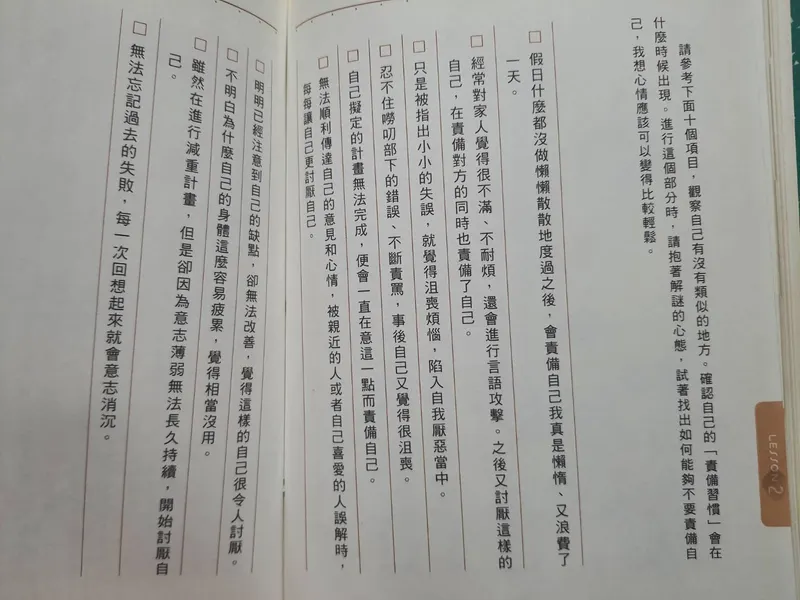 請參考下面十個項目，觀察自己有沒有類似的地方。確認自己的「責備習慣」會在
什麼時候出現。進行這個部分時，請抱著解謎的心態，試著找出如何能夠不要責備自
己，我想心情應該可以變得比較輕鬆。
□ 假日什麼都沒做懶懶散散地度過之後，會責備自己我真是懶惰、又浪費了
一天。
□ 經常對家人覺得很不滿、不耐煩，還會進行言語攻擊。之後又討厭這樣的
自己，在責備對方的同時也責備了自己。
□ 只是被指出小小的失誤，就覺得沮喪煩惱，陷入自我厭惡當中。
□ 忍不住嘮叨部下的錯誤、不斷責罵，事後自己又覺得很沮喪。
□ 自己擬定的計畫無法完成，便會一直在意這一點而責備自己。
□ 無法順利傳達自己的意見和心情，被親近的人或者自己喜愛的人誤解時，
每每讓自己更討厭自己。
□ 明明已經注意到自己的缺點，卻無法改善，覺得這樣的自己很令人討厭。
□ 不明白為什麼自己的身體這麼容易疲累，覺得相當沒用。
□ 雖然在進行減重計畫，但是卻因為意志薄弱無法長久持續，開始討厭自
己。
□ 無法忘記過去的失敗，每一次回想起來就會意志消沉。
LESSON 2